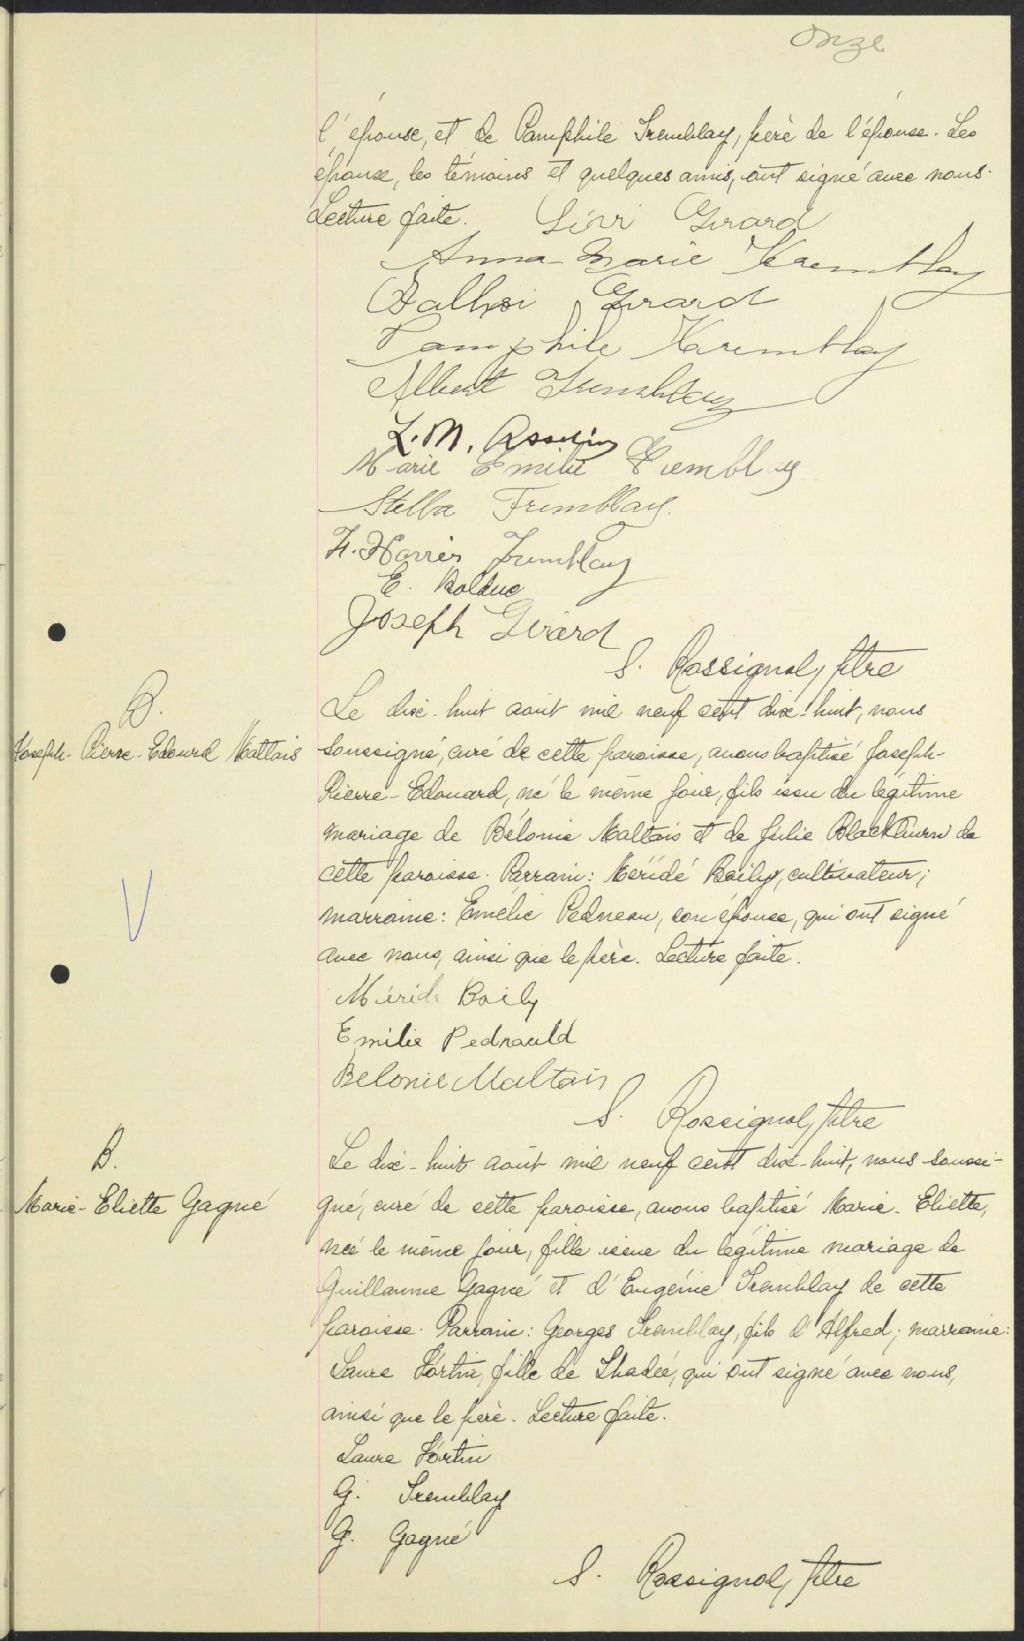 Onze
l'épouse, et de Pamphile Tremblay, père de l'épouse. Les
épouse, les témoins et quelques amis, ont signé avec nous.
Lecture faite. Girard
Anna-Marie Tremblay
Girard
Pamphile Tremblay
Albert Tremblay
L. M. Asselin
Marie Emilie Tremblay
Stella Tremblay.
Tremblay
E. Bolduc
Joseph Girard
S. Rossignol, ptre
B.
Joseph-Pierre-Edouard Maltais
Le dix-huit août mil neuf cent dix-huit, nous
soussigné, curé de cette paroisse, avons baptisé Joseph-
Pierre-Edouard, né le même jour, fils issu du légitime
mariage de Bélonie Maltais et de Julie Blackburn de
cette paroisse. Parrain: Méridé Boily, cultivateur;
marraine: Emélie Pedneau, son épouse, qui ont signé
avec nous, ainsi que le père. Lecture faite.
Méridé Boily
Emilie Pednauld
Belonie Maltais
S. Rossignol, ptre
B.
Marie-Eliette Gagné
Le dix-huit août mil neuf cent dix-huit, nous soussi-
gné, curé de cette paroisse, avons baptisé Marie-Eliette,
née le même jour, fille issue du légitime mariage de
Guillaume Gagné et d'Eugénie Tremblay de cette
paroisse. Parrain: Georges Tremblay, fils d'Alfred; marraine:
Laura Fortin, fille de Thadée, qui ont signé avec nous,
ainsi que le père. Lecture faite.
Laura Fortin
G. Tremblay
G. Gagné
S. Rossignol, ptre